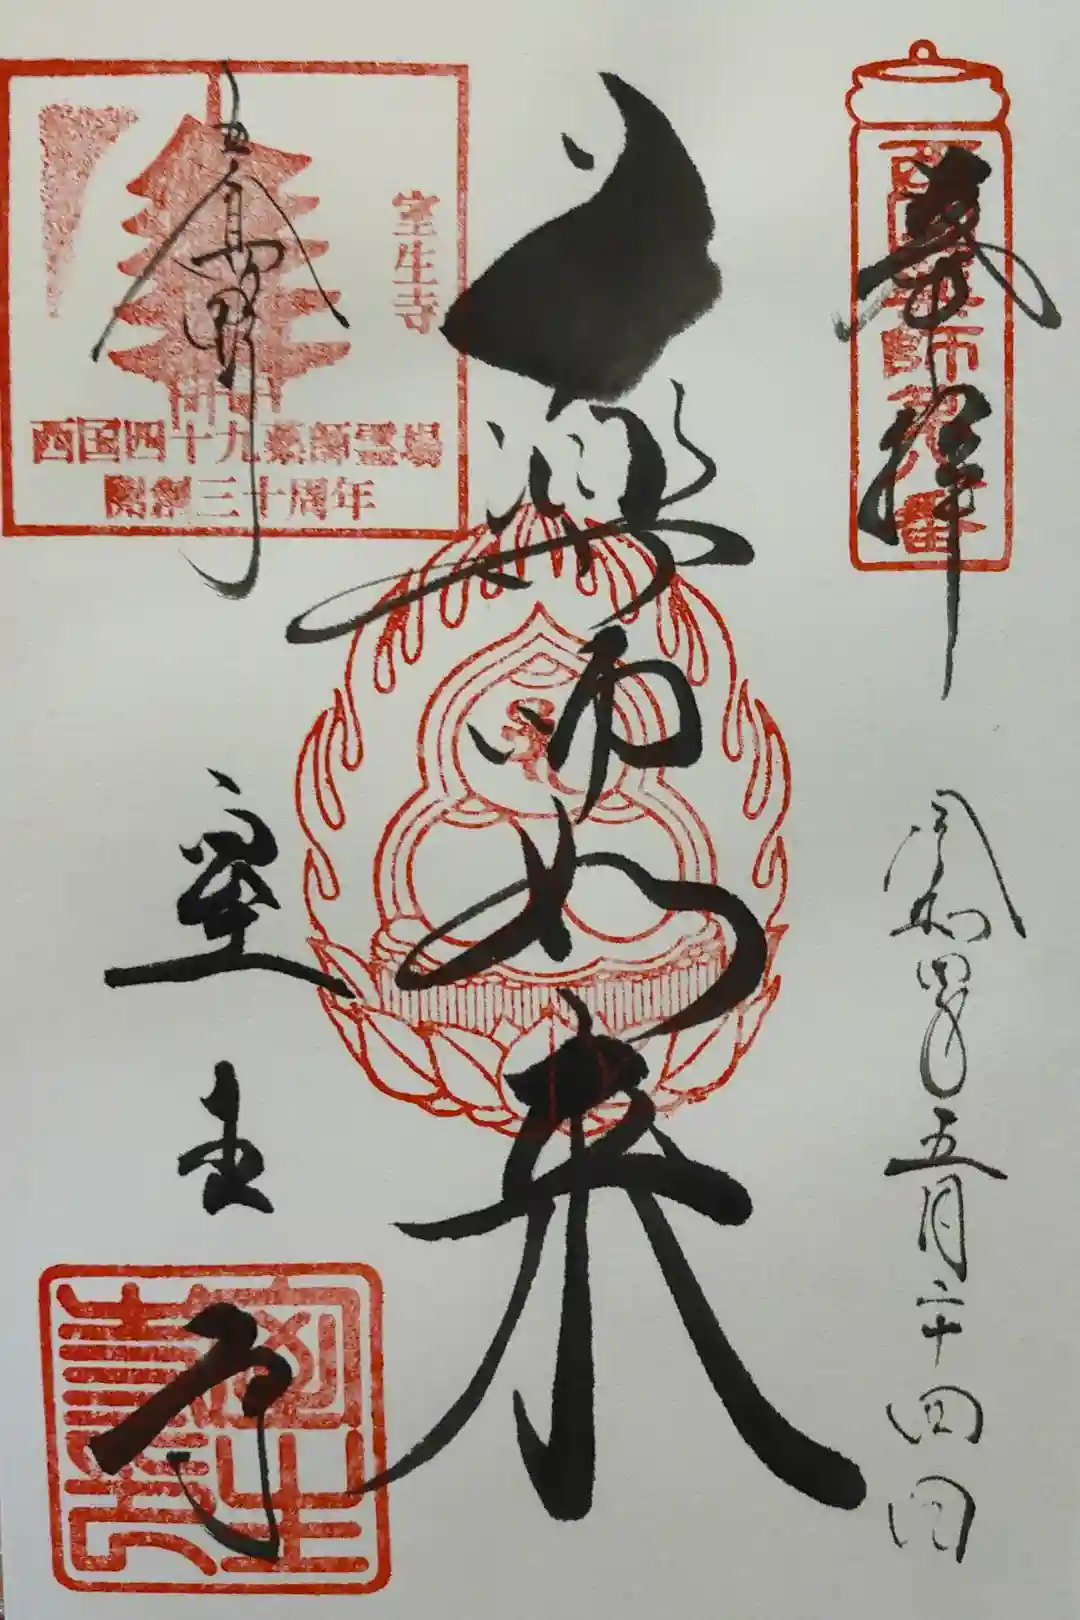 奉拝
西国薬師第八番
令和四年五月二十四日
薬師如来
女人高野
室生寺
室生寺
西国四十九薬師霊場
開創三十周年